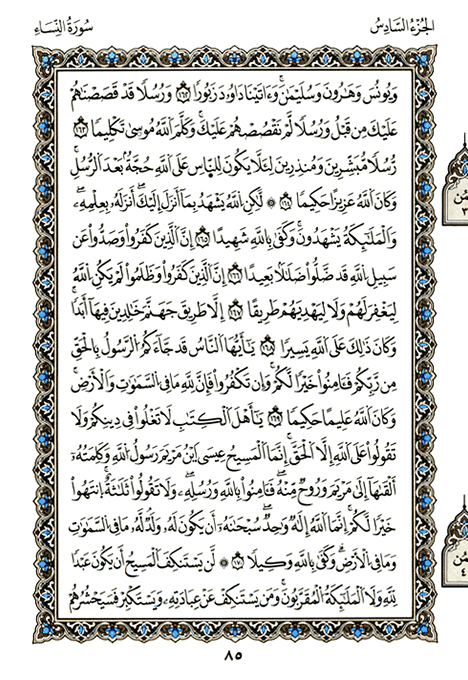 الجُزءُ السَّادِسُ
سُورَةُ النِّسَاءِ
وَيُونُسَ وَهَٰرُونَ وَسُلَيْمَٰنَۚ وَءَاتَيْنَا دَاوُۥدَ زَبُورًا ١٦٣ وَرُسُلًا قَدْ قَصَصْنَٰهُمْ
عَلَيْكَ مِن قَبْلُ وَرُسُلًا لَّمْ نَقْصُصْهُمْ عَلَيْكَۚ وَكَلَّمَ ٱللَّهُ مُوسَىٰ تَكْلِيمًا ١٦٤
رُّسُلًا مُّبَشِّرِينَ وَمُنذِرِينَ لِئَلَّا يَكُونَ لِلنَّاسِ عَلَى ٱللَّهِ حُجَّةٌۢ بَعْدَ ٱلرُّسُلِۚ
وَكَانَ ٱللَّهُ عَزِيزًا حَكِيمًا ١٦٥ ۞ لَّٰكِنِ ٱللَّهُ يَشْهَدُ بِمَآ أَنزَلَ إِلَيْكَۖ أَنزَلَهُۥ بِعِلْمِهِۦۖ
وَٱلْمَلَٰٓئِكَةُ يَشْهَدُونَۚ وَكَفَىٰ بِٱللَّهِ شَهِيدًا ١٦٦ إِنَّ ٱلَّذِينَ كَفَرُوا۟ وَصَدُّوا۟ عَن
سَبِيلِ ٱللَّهِ قَدْ ضَلُّوا۟ ضَلَٰلًۢا بَعِيدًا ١٦٧ إِنَّ ٱلَّذِينَ كَفَرُوا۟ وَظَلَمُوا۟ لَمْ يَكُنِ ٱللَّهُ
لِيَغْفِرَ لَهُمْ وَلَا لِيَهْدِيَهُمْ طَرِيقًا ١٦٨ إِلَّا طَرِيقَ جَهَنَّمَ خَٰلِدِينَ فِيهَآ أَبَدًاۚ
وَكَانَ ذَٰلِكَ عَلَى ٱللَّهِ يَسِيرًا ١٦٩ يَٰٓأَيُّهَا ٱلنَّاسُ قَدْ جَآءَكُمُ ٱلرَّسُولُ بِٱلْحَقِّ
مِن رَّبِّكُمْ فَـَٔامِنُوا۟ خَيْرًا لَّكُمْۚ وَإِن تَكْفُرُوا۟ فَإِنَّ لِلَّهِ مَا فِى ٱلسَّمَٰوَٰتِ وَٱلْأَرْضِۚ
وَكَانَ ٱللَّهُ عَلِيمًا حَكِيمًا ١٧٠ يَٰٓأَهْلَ ٱلْكِتَٰبِ لَا تَغْلُوا۟ فِى دِينِكُمْ وَلَا
تَقُولُوا۟ عَلَى ٱللَّهِ إِلَّا ٱلْحَقَّۚ إِنَّمَا ٱلْمَسِيحُ عِيسَى ٱبْنُ مَرْيَمَ رَسُولُ ٱللَّهِ وَكَلِمَتُهُۥٓ
أَلْقَىٰهَآ إِلَىٰ مَرْيَمَ وَرُوحٌ مِّنْهُۖ فَـَٔامِنُوا۟ بِٱللَّهِ وَرُسُلِهِۦۖ وَلَا تَقُولُوا۟ ثَلَٰثَةٌۚ ٱنتَهُوا۟
خَيْرًا لَّكُمْۚ إِنَّمَا ٱللَّهُ إِلَٰهٌ وَٰحِدٌۖ سُبْحَٰنَهُۥٓ أَن يَكُونَ لَهُۥ وَلَدٌۘ لَّهُۥ مَا فِى ٱلسَّمَٰوَٰتِ
وَمَا فِى ٱلْأَرْضِۗ وَكَفَىٰ بِٱللَّهِ وَكِيلًا ١٧١ لَّن يَسْتَنكِفَ ٱلْمَسِيحُ أَن يَكُونَ عَبْدًا
لِّلَّهِ وَلَا ٱلْمَلَٰٓئِكَةُ ٱلْمُقَرَّبُونَۚ وَمَن يَسْتَنكِفْ عَنْ عِبَادَتِهِۦ وَيَسْتَكْبِرْ فَسَيَحْشُرُهُمْ
٨٥